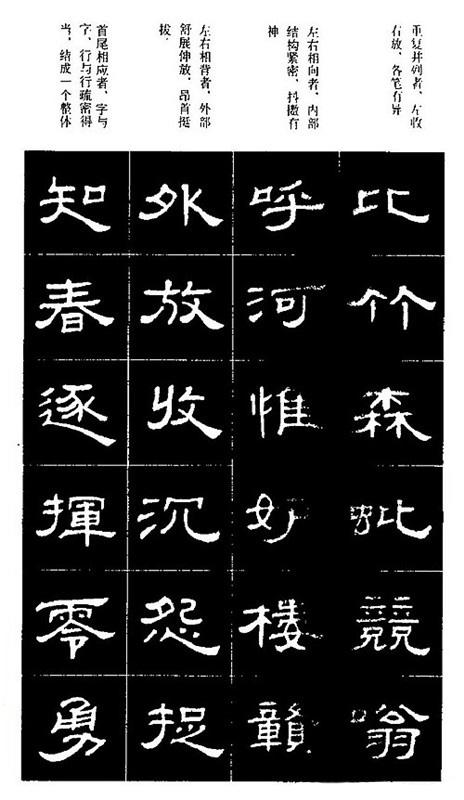 重复并列者、左收
右放、各笔有异
左右相向者、内部
结构紧密、抖擞有
神
左右相背者、外部
舒展伸放、昂首挺
拔、
首尾相应者、字与
字、行与行疏密得
当、结成一个整体
比竹森蚍競嗡
呼河惟
外放收沉怨
知春逐揮零勇